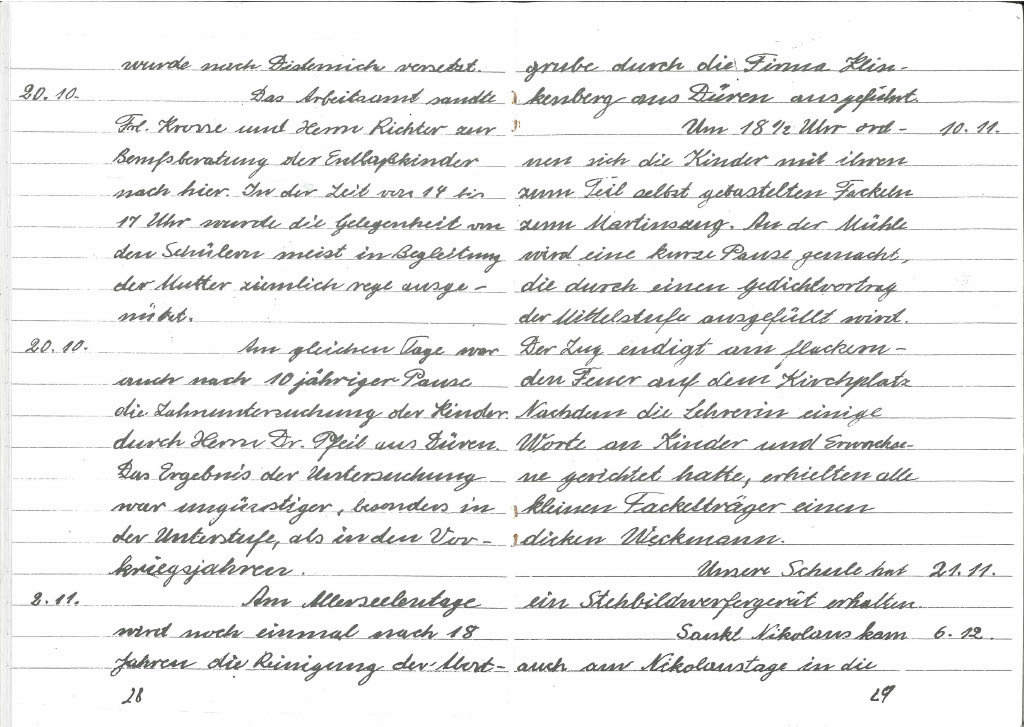 wurde nach Disternich versetzt.
20.10. Das Arbeitsamt sandte
Frl. Krosse und Herrn Richter zur
Berufsberatung der Entlaßkinder
nach hier. In der Zeit von 14 bis
17 Uhr wurde die Gelegenheit von
den Schülern meist in Begleitung
der Mutter ziemlich rege ausge-
nützt.
20.10. Am gleichen Tage war
auch nach 10 jähriger Pause
die Zahnuntersuchung der Kinder
durch Herrn Dr. Pfeil aus Düren.
Das Ergebnis der Untersuchung
war ungünstiger, besonders in
der Unterstufe, als in den Vor-
kriegsjahren.
2.11. Am Allerseelentage
wird noch einmal nach 18
Jahren die Reinigung der Abort-
28
grube durch die Firma Klin-
kenberg aus Düren ausgeführt.
Um 18 1/2 Uhr ord- 10.11.
nen sich die Kinder mit ihren
zum Teil selbst gebastelten Fackeln
zum Martinszug. An der Mühle
wird eine kurze Pause gemacht,
die durch einen Gedichtvortrag
der Mittelstufe ausgefüllt wird.
Der Zug endigt am flackern-
den Feuer auf dem Kirchplatz
Nachdem die Lehrerin einige
Worte an Kinder und Erwachse-
ne gerichtet hatte, erhielten alle
kleinen Fackelträger einen
dicken Weckmann.
Unsere Schule hat 21.11.
ein Stehbildwerfergerät erhalten.
Sankt Nikolaus kam 6.12.
auch am Nikolaustage in die
29